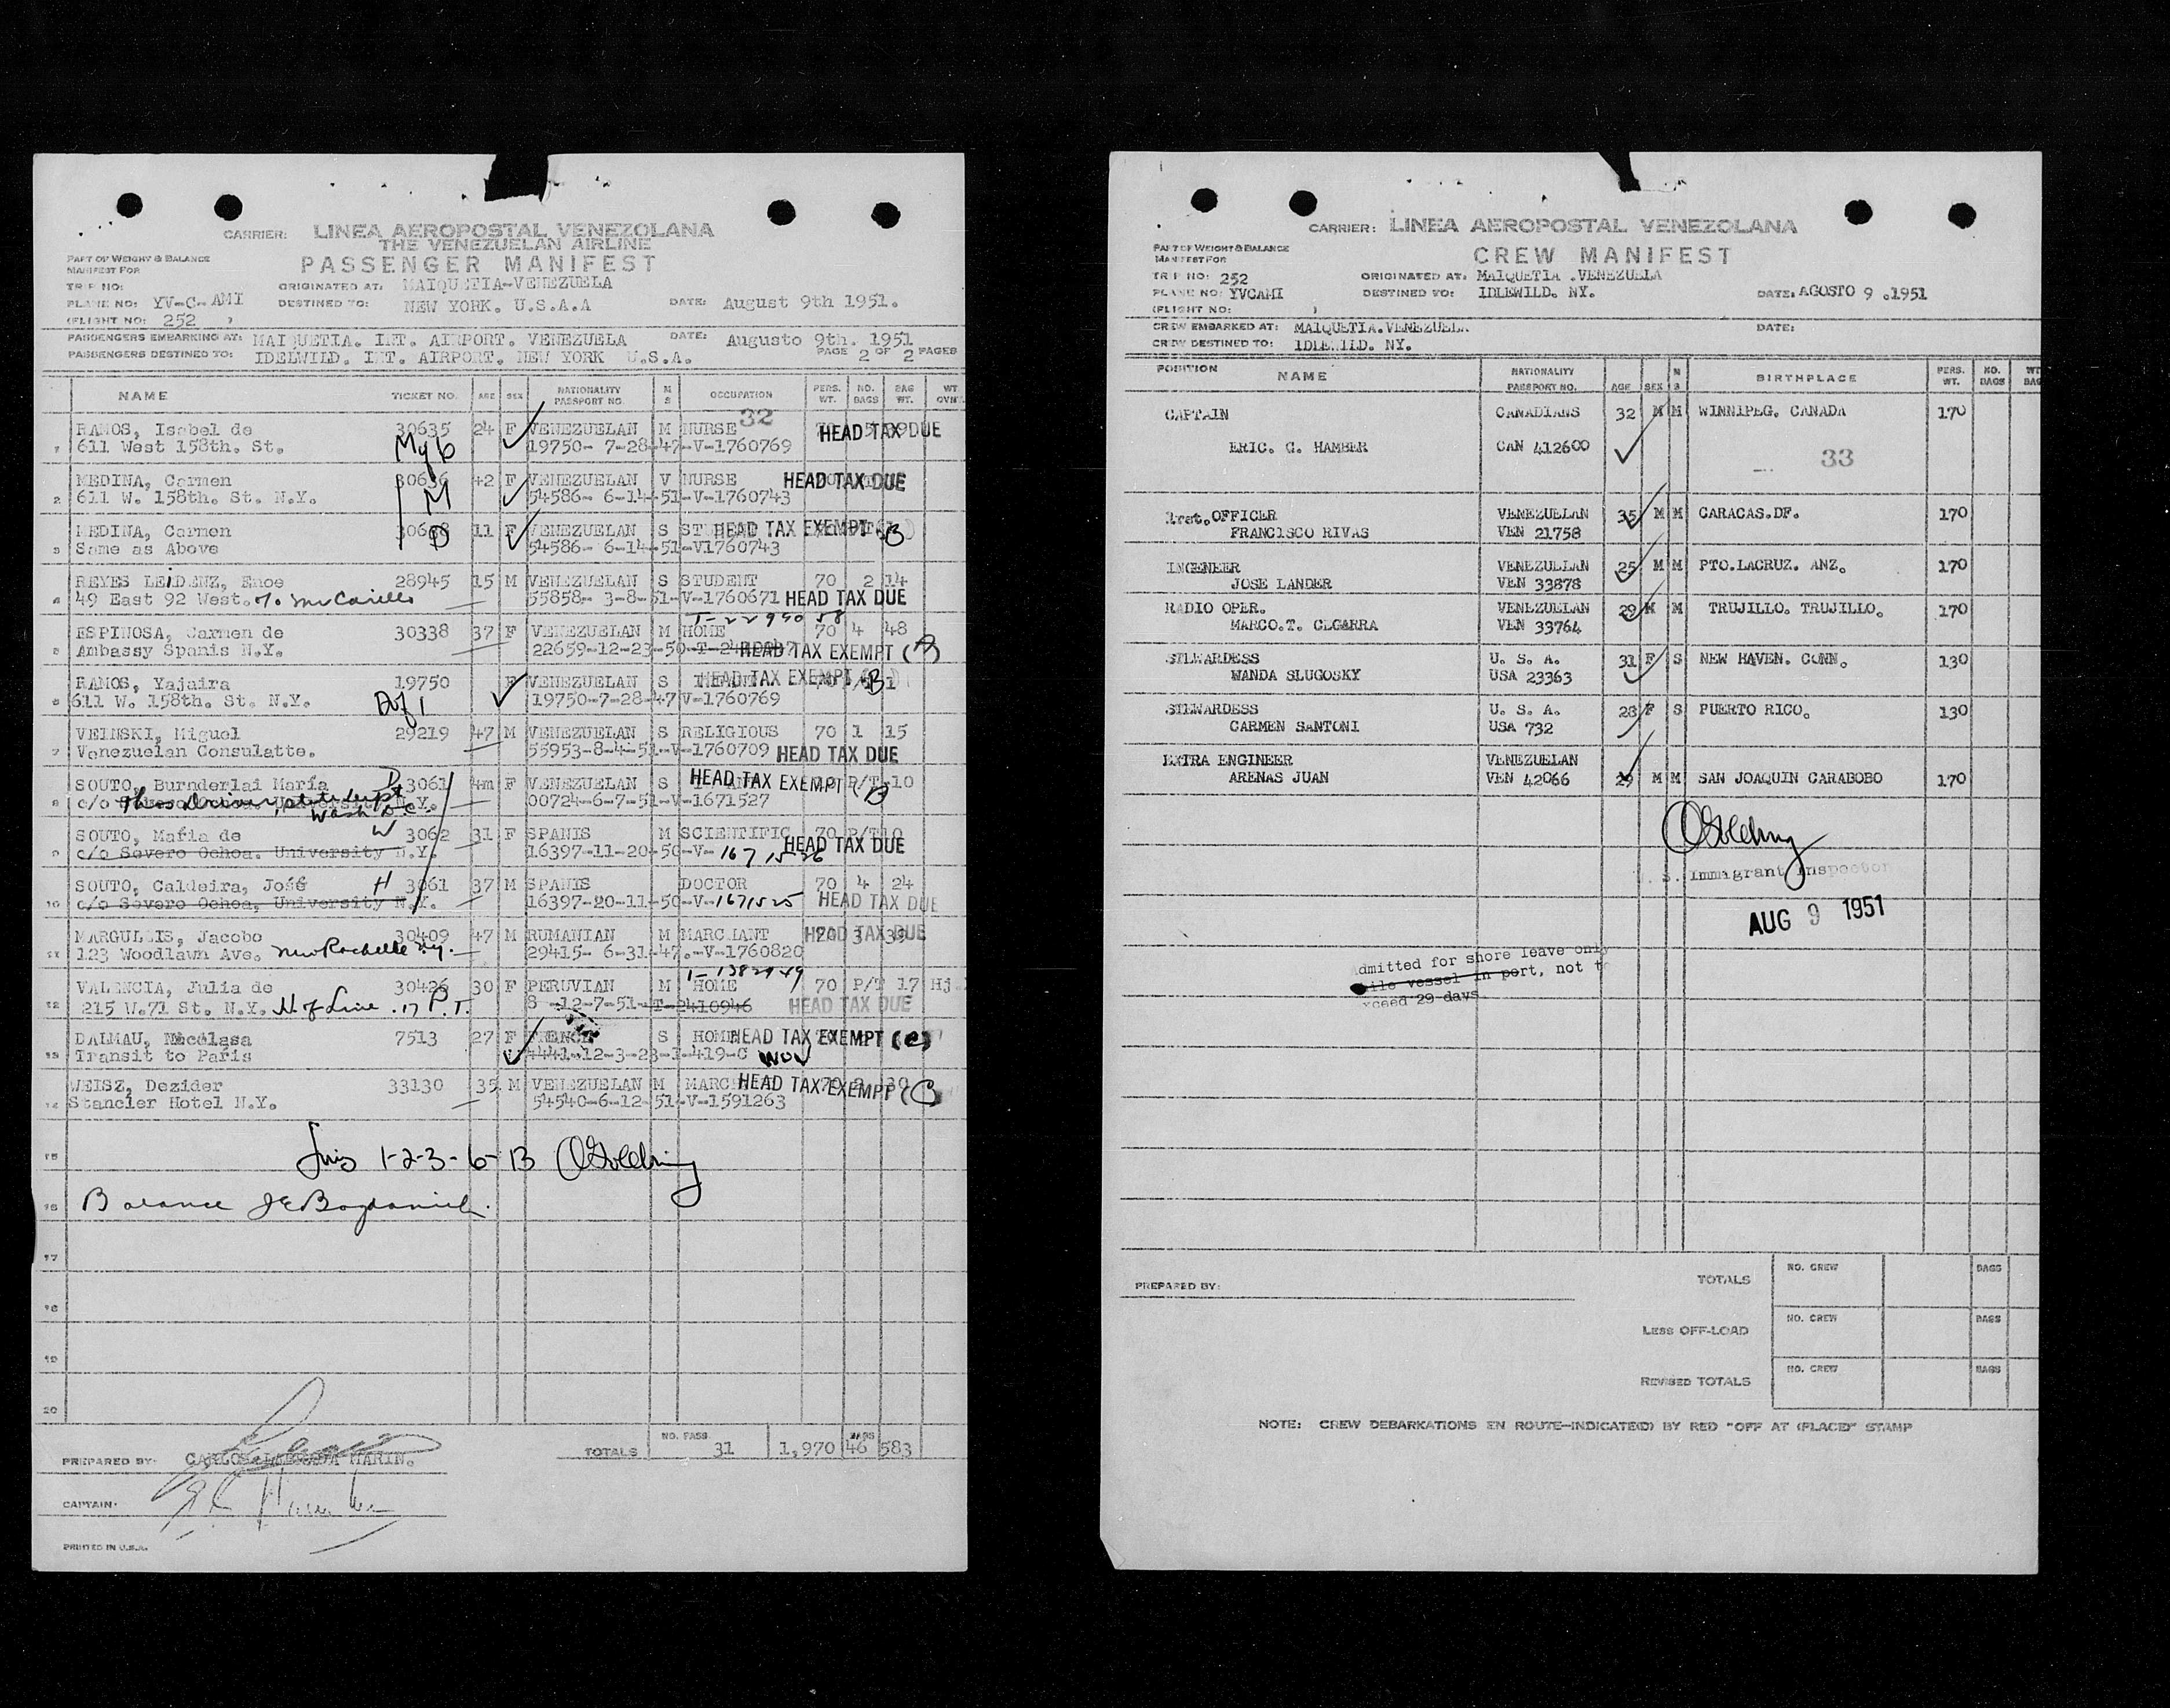 CARRIER: LINEA AEROPOSTAL VENEZOLANA
THE VENEZUELAN AIRLINE
PART OF WEIGHT & BALANCE
MANIFEST FOR
PASSENGER MANIFEST
TRIP NO: ORIGINATED AT: MAIQUETIA-VENEZUELA
PLANE NO: YV-C-AMI DESTINED TO: NEW YORK. U.S.A.A DATE: August 9th 1951.
(FLIGHT NO: 252 )
PASSENGERS EMBARKING AT: MAIQUETIA. INT. AIRPORT. VENEZUELA DATE: Augusto 9th. 1951
PASSENGERS DESTINED TO: IDELWILD. INT. AIRPORT. NEW YORK U.S.A. PAGE 2 OF 2 PAGES
NAME TICKET NO. AGE SEX NATIONALITY PASSPORT NO. M S OCCUPATION PERS. WT. NO. BAGS BAG WT. WT.
32
1 RAMOS, Isabel de 30635 24 F VENEZUELAN M NURSE HEAD TAX DUE
611 West 158th. St. 19750- 7-28-47-V-1760769
2 MEDINA, Carmen 30636 42 F VENEZUELAN V NURSE HEAD TAX DUE
611 W. 158th. St. N.Y. M 54586- 6-14-51-V-1760743
3 MEDINA, Carmen 11 F VENEZUELAN S HEAD TAX EXEMPT (B)
Same as Above D 54586- 6-14-51-V1760743
4 REYES LEIDENZ, Enoe 28945 15 M VENEZUELAN S STUDENT 70 2 14
49 East 92 West. 55858- 3-8-51-V-1760671 HEAD TAX DUE
5 ESPINOSA, Carmen de 30338 37 F VENEZUELAN M HOME 70 4 48
Ambassy Spanis N.Y. 22659-12-23-50 HEAD TAX EXEMPT
6 RAMOS, Yajaira 19750 F VENEZUELAN S HEAD TAX EXEMPT (B)
611 W. 158th. St. N.Y. 19750-7-28-47 V-1760769
7 VEINSKI, Miguel 29219 47 M VENEZUELAN S RELIGIOUS 70 1 15
Venezuelan Consulatte. 55953-8-4-51-V-1760709 HEAD TAX DUE
8 SOUTO, Burnderlai María D 3061 4m F VENEZUELAN S HEAD TAX EXEMPT P/T 10
c/o University N.Y. Wash D.C. 00724-6-7-51-V-1671527
9 SOUTO, María de W 3062 31 F SPANIS M SCIENTIFIC 70 P/T 10
c/o Severo Ochoa. University N.Y. 16397-11-20-50-V-1671526 HEAD TAX DUE
10 SOUTO, Caldeira, José H 3061 37 M SPANIS DOCTOR 70 4 24
c/o Severo Ochoa, University N.Y. 16397-20-11-50-V-1671525 HEAD TAX DUE
11 MARGULLIS, Jacobo 30409 47 M RUMANIAN M MARCHANT HEAD TAX DUE
123 Woodlawn Ave. New Rochelle N.Y. 29415- 6-31-47.-V-1760820
12 VALENCIA, Julia de 30426 30 F PERUVIAN M HOME 70 P/T 17 Hj
215 W.71 St. N.Y. S -12-7-51-T-2410946 HEAD TAX DUE
13 DALMAU, Nicolasa 7513 27 F FRENCH S HOME HEAD TAX EXEMPT
Transit to Paris 4441-12-3-23-I-419-C
14 WEISZ, Dezider 33130 35 M VENEZUELAN M HEAD TAX EXEMPT
Stancler Hotel N.Y. 54540-6-12-51-V-1591263
15 1-2-3-6-13
16
17
18
19
20
TOTALS NO. PASS 31 1,970 BAGS 46 583
PREPARED BY: MARIN.
CAPTAIN:
PRINTED IN U.S.A.
CARRIER: LINEA AEROPOSTAL VENEZOLANA
PART OF WEIGHT & BALANCE
MANIFEST FOR
CREW MANIFEST
TRIP NO: 252 ORIGINATED AT: MAIQUETIA .VENEZUELA
PLANE NO: YVCAMI DESTINED TO: IDLEWILD. NY. DATE: AGOSTO 9 .1951
(FLIGHT NO: )
CREW EMBARKED AT: MAIQUETIA.VENEZUELA DATE:
CREW DESTINED TO: IDLEWILD. NY.
POSITION NAME NATIONALITY PASSPORT NO. AGE SEX M S BIRTHPLACE PERS. WT. NO. BAGS WT. BAG
CAPTAIN CANADIANS 32 M M WINNIPEG. CANADA 170
ERIC. G. HAMBER CAN 412600
33
OFFICER VENEZUELAN 35 M M CARACAS.DF. 170
FRANCISCO RIVAS VEN 21758
INGENEER VENEZUELAN 25 M M PTO.LACRUZ. ANZ. 170
JOSE LANDER VEN 33878
RADIO OPER. VENEZUELAN 29 M M TRUJILLO. TRUJILLO. 170
MARCO.T. CEGARRA VEN 33764
STEWARDESS U. S. A. 31 F S NEW HAVEN. CONN. 130
WANDA SLUGOSKY USA 23363
STEWARDESS U. S. A. 28 F S PUERTO RICO. 130
CARMEN SANTONI USA 732
EXTRA ENGINEER VENEZUELAN
ARENAS JUAN VEN 42066 29 M M SAN JOAQUIN CARABOBO 170
U. S. Immigrant Inspector
AUG 9 1951
admitted for shore leave only
while vessel in port, not to
exceed 29 days
PREPARED BY:
TOTALS NO. CREW BAGS
LESS OFF-LOAD NO. CREW BAGS
REVISED TOTALS NO. CREW BAGS
NOTE: CREW DEBARKATIONS EN ROUTE-INDICATE(D) BY RED "OFF AT (PLACE)" STAMP